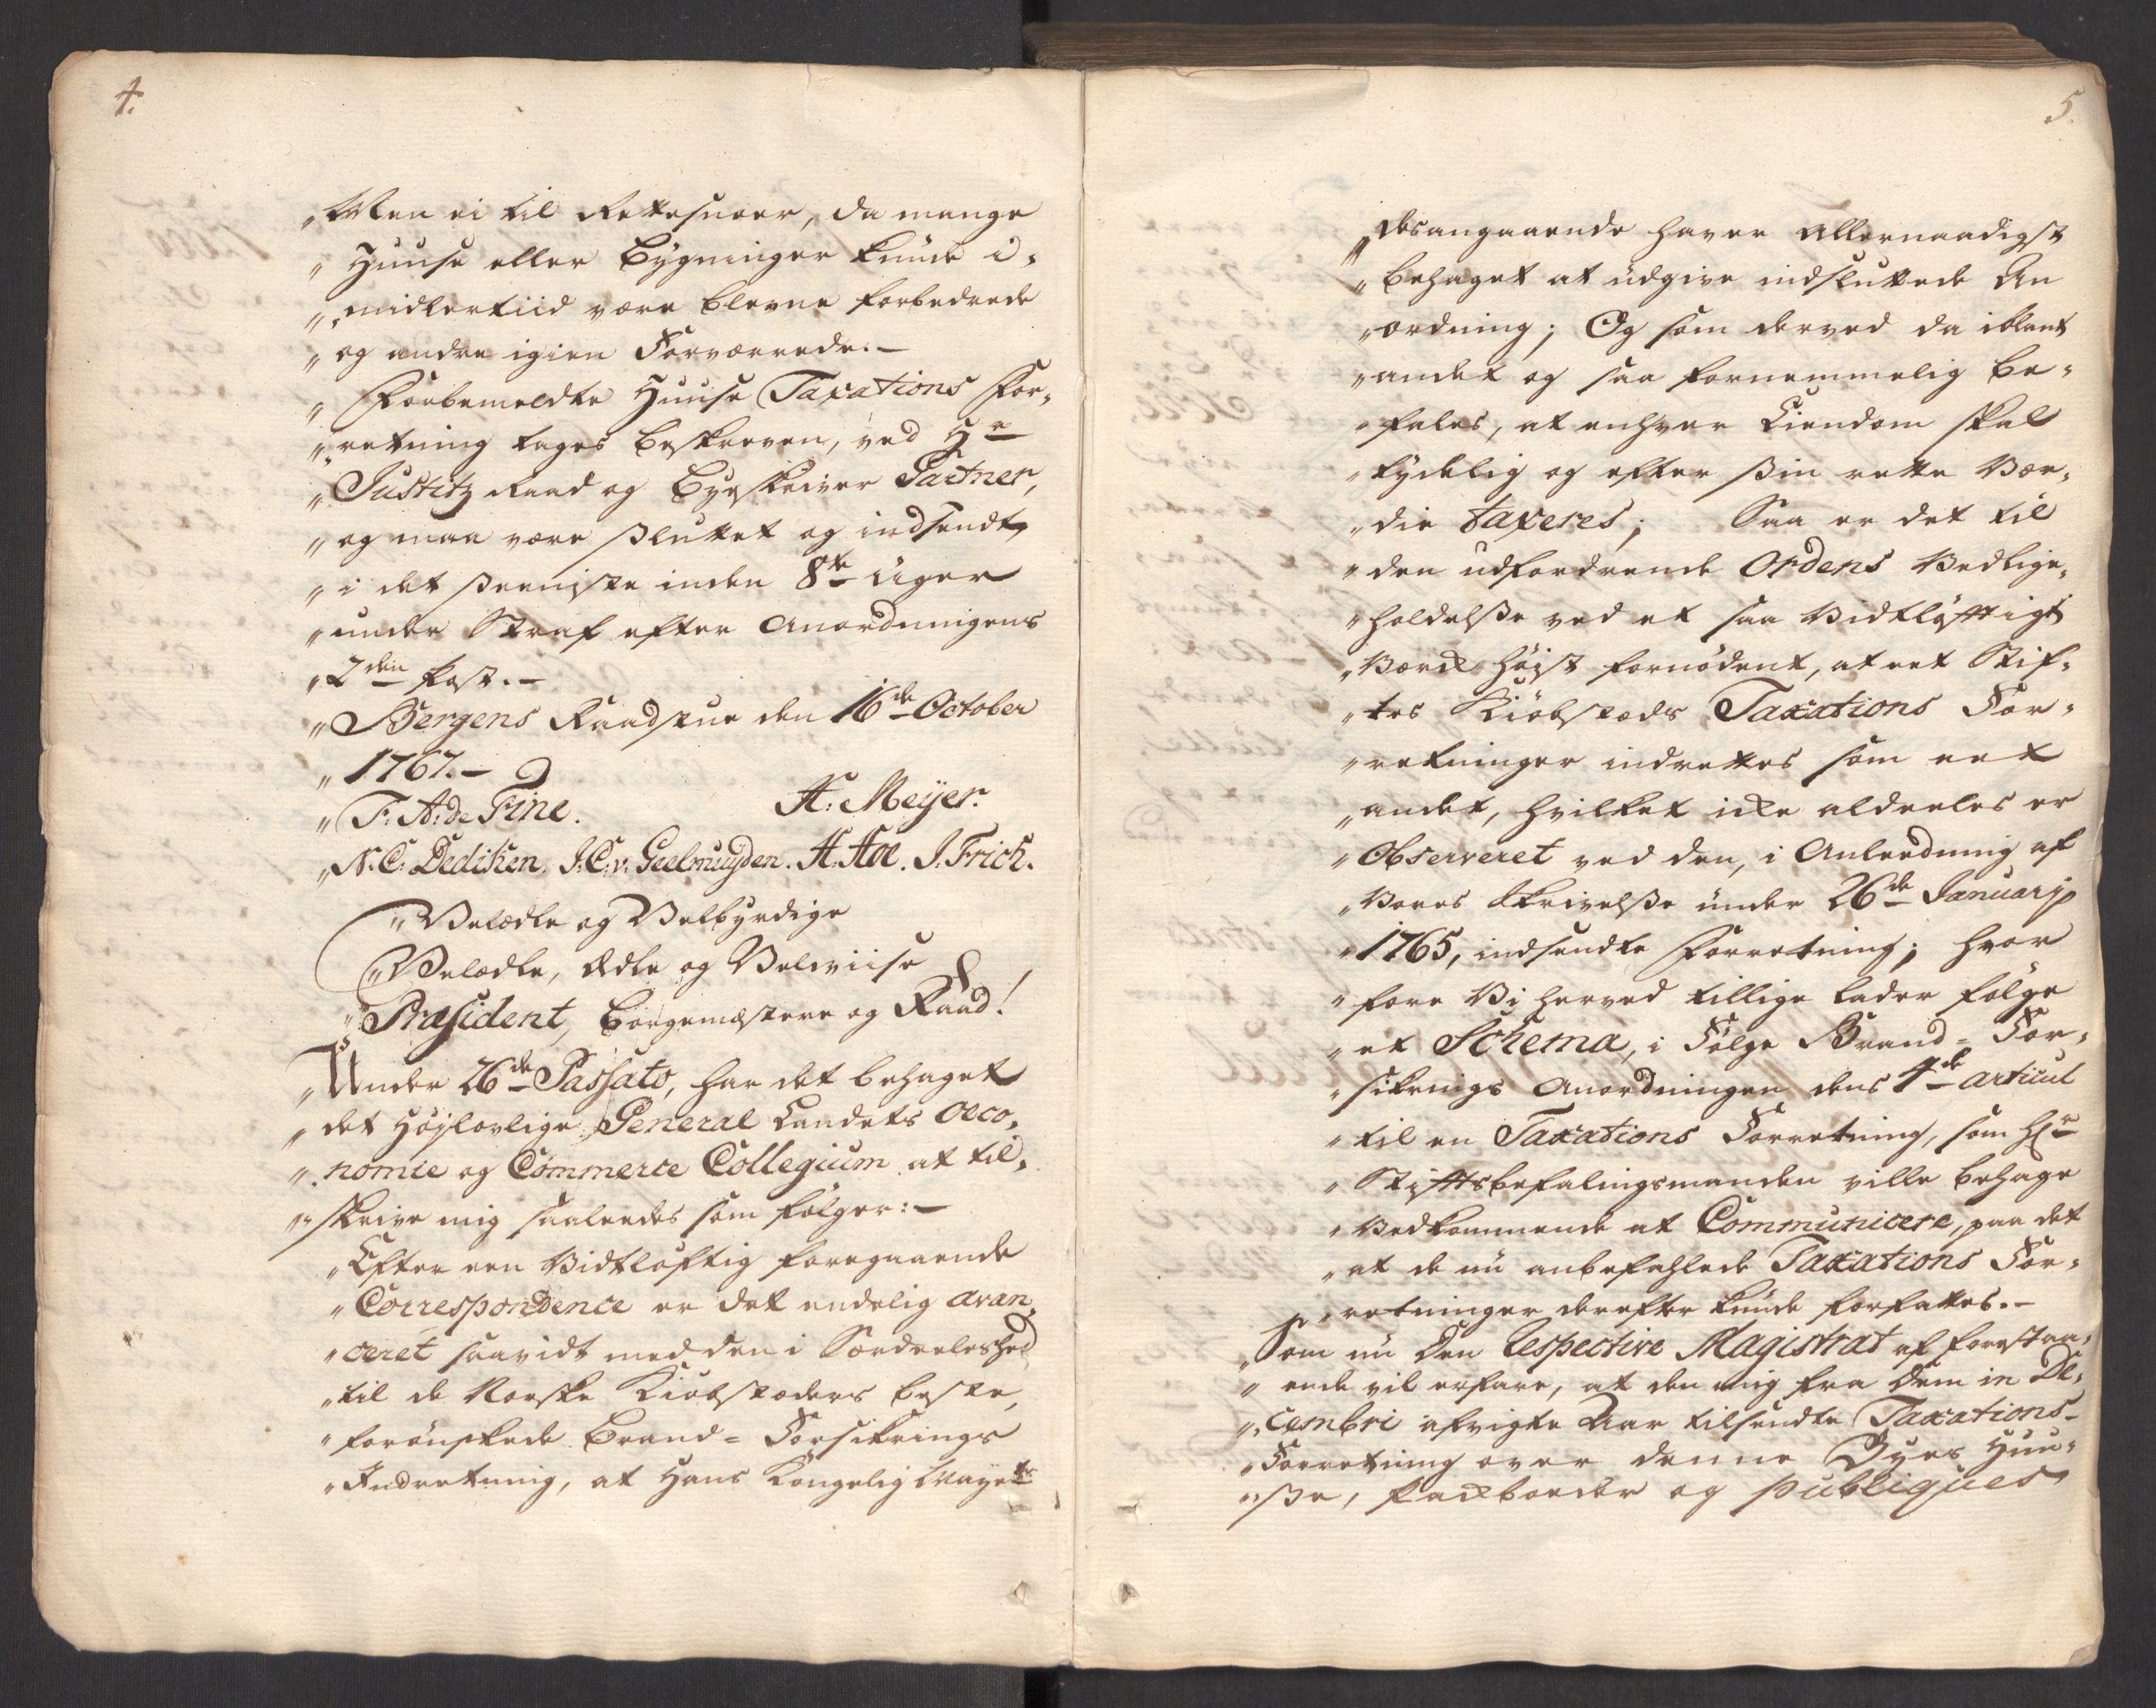 4.
„Men ei til Rettesnoer, da mange
„Huuse eller Bygninger kunde i-
„midlertiid være blevne forbedrede
„og andre igien Forværrede.-
„Forbemeldte Huuse Taxations For-
„retning tages beskreven, ved Hr
„Justitz Raad og Byeskriver Partner,
„og maa være sluttet og indsendt
„i det seeniste inden 8te Uger
„under Straf efter Anordningens
„2den Post.-
„Bergens Raadstue den 16de October
„1767.-
„F: A: de Fine. A: Meyer.
„N. C: Dediken. J: C: v: Geelmuyden. A. Aae. J. Frich.
„Velædle og Velbyrdige
„Velædle, Ædle og Velviise
„Præsident, Borgemæstere og Raad!
„Under 26de Passato, har det behaget
„det Høylovlige General Landets Oeco-
„nomie og Commerce Collegium at til-
„skrive mig saaleedes som følger:-
„Efter een Vidtløftig foregaaende
„Correspondence er det endelig avan-
„ceret saavidt med den i Særdeeleshed
„til de Norske Kiøbstæders beste,
„forønskede Brand-Forsikrings
„Indretning, at Hans Kongelig Mayts
5.
„desangaaende haver Allernaadigst
„behaget at udgive indsluttede An
„ordning; Og som derved da iblant
„andet og saa fornemmelig be-
„fales, at enhver Eiendom skal
„tydelig og efter sin rette Vær-
„die taxeres; Saa er det til
„den udfordrende Ordens Vedlige-
„holdelse ved et saa Vidtløfftigt
„Værck høist fornødent, at eet Stif-
„tes Kiøbstæds Taxations For-
„retninger indrettes som eet
„andet, hvilket icke aldeeles er
„Observeret ved den, i Anleedning af
„Vores Skrivelse under 26de Januarij
„1765, indsendte Forretning; hvor
„fore Vi herved tillige lader følge
„et Schema, i Følge Brand-For-
„sikrings Anordningen dens 4de Articul
„til en Taxations Forretning, som Hr
„Stiftsbefalingsmanden ville behage
„Vedkommende at Communicere, paa det
„at de nu anbefahlede Taxations For-
„retninger derefter kunde forfattes.-
„Som nu Den Respective Magistrat af forestaa-
„ende vil erfare, at den mig fra Dem in De-
„cembri afvigte Aar tilsendte Taxations-
„Forretning over denne Byes Huu-
„se, Packboeder og publiques